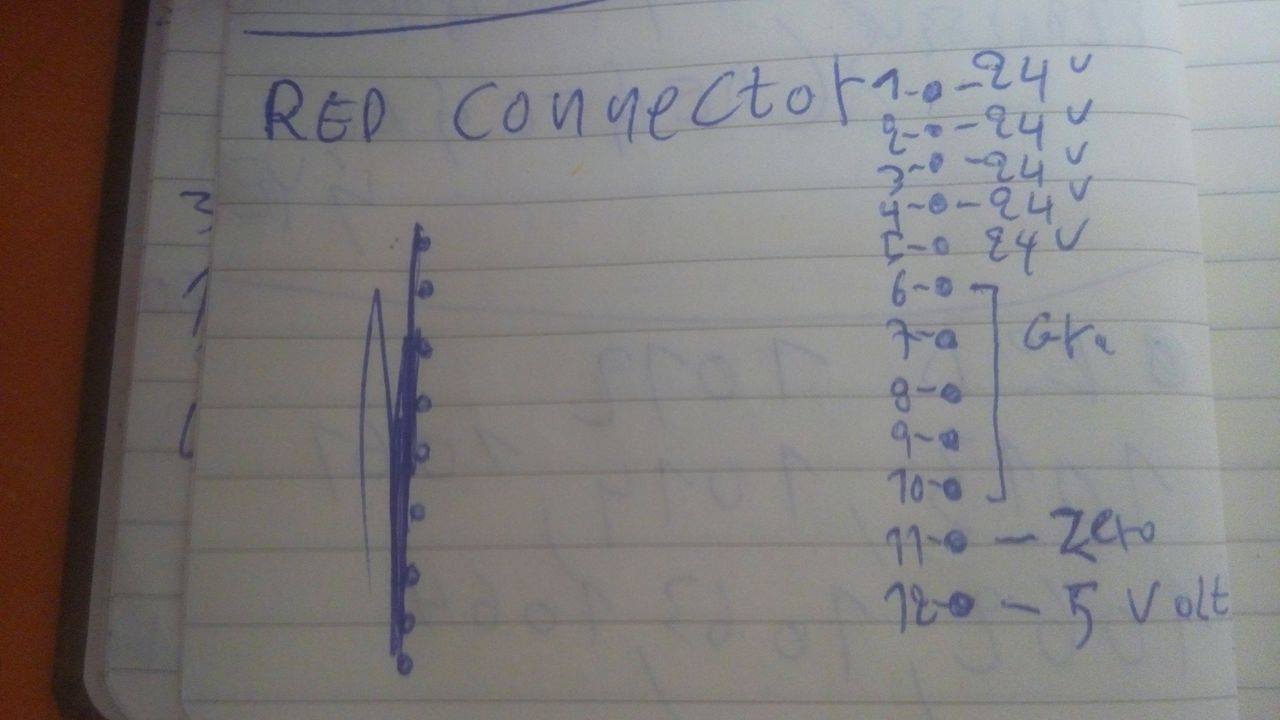 RED Connector
1-o-24 V
2-o-24 V
3-o-24 V
4-o-24 V
5-o 24 V
6-o
7-o
8-o
9-o
10-o
11-o - Zero
12-o - 5 Volt
3
1